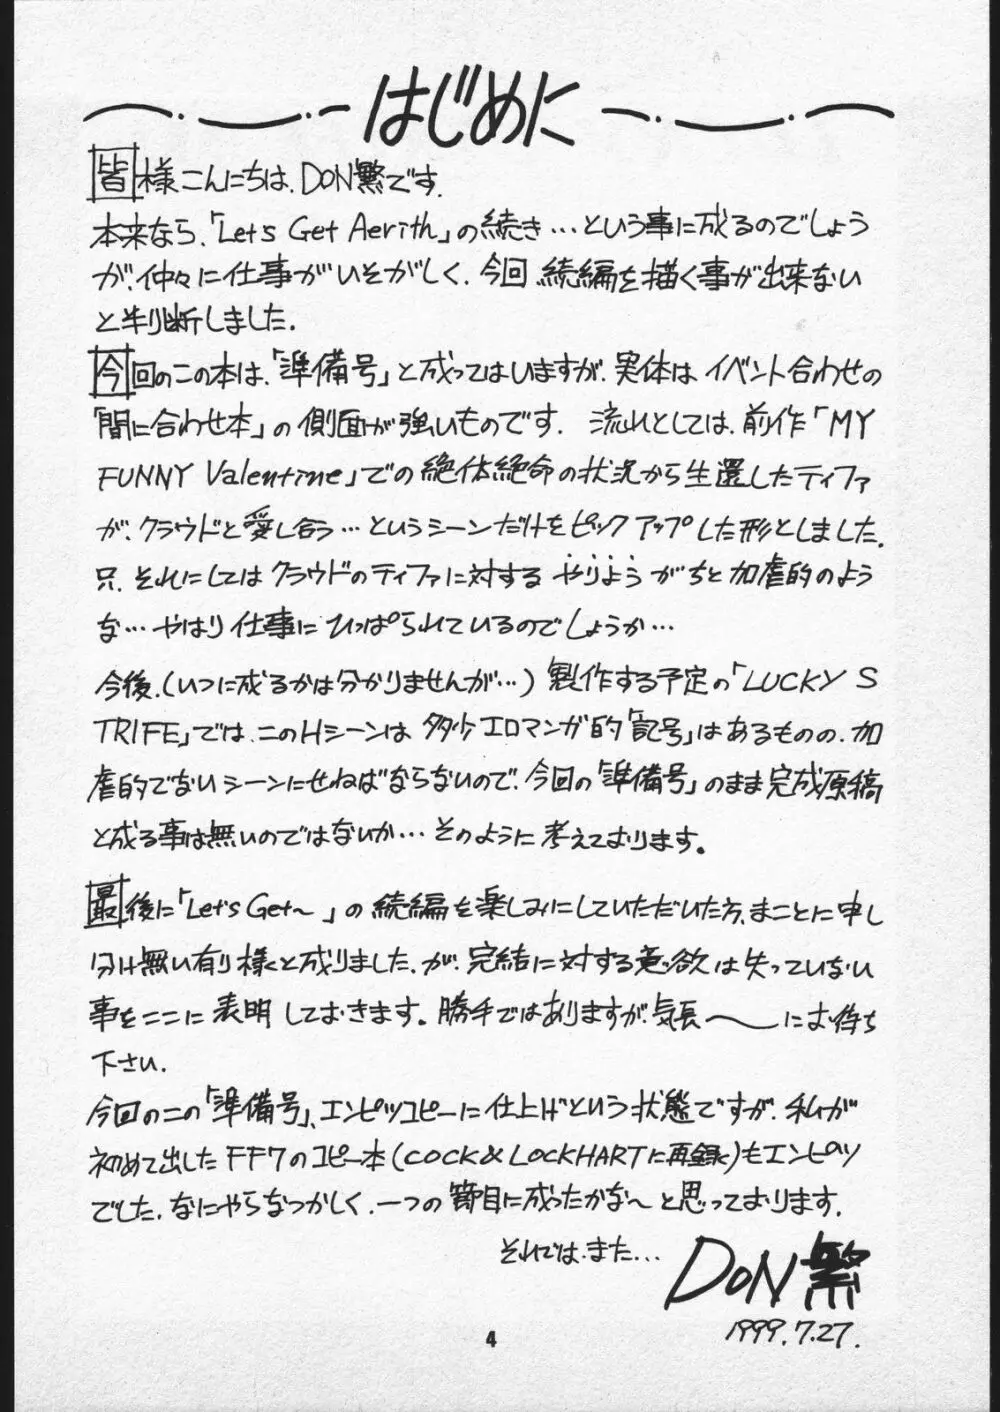 はじめに
皆様こんにちは、DON繁です.
本来なら、「Let's Get Aerith」の続き…という事に成るのでしょう
が、仲々に仕事がいそがしく、今回、続編を描く事が出来ない
と判断しました.
今回のこの本は、「準備号」と成ってはいますが、実体は イベント合わせの
「間に合わせ本」の 側面が強いものです. 流れとしては、前作「MY
FUNNY Valentine」での 絶体絶命の状況から生還したティファ
が、クラウドと愛し合う…というシーンだけをピックアップした形としました.
只、それにしてはクラウドのティファに対する やりよう がちと加虐的のよう
な…やはり仕事にひっぱられているのでしょうか…
今後、(いつに成るかは分かりませんが…) 製作する予定の「LUCKY S
TRIFE」では、このHシーンは 多少エロマンガ的「記号」はあるものの、加
虐的でないシーンにせねばならないので、今回の「準備号」のまま完成原稿
と成る事は無いのではないか…そのように 考えております。
最後に「Let's Get〜」の続編を楽しみにしていただいた方、まことに申し
分け無い有り様と成りました、が、完結に対する意欲は失っていない
事をここに表明しておきます。勝手ではありますが、気長〜にお待ち
下さい.
今回のこの「準備号」、エンピツコピーに仕上げという状態ですが、私が
初めて出したFF7のコピー本(COCK&LOCKHARTに再録)もエンピツ
でした、なにやらなつかしく、一つの節目に成ったかな〜と思っております.
それでは、また…
DON繁
1999.7.27.
4